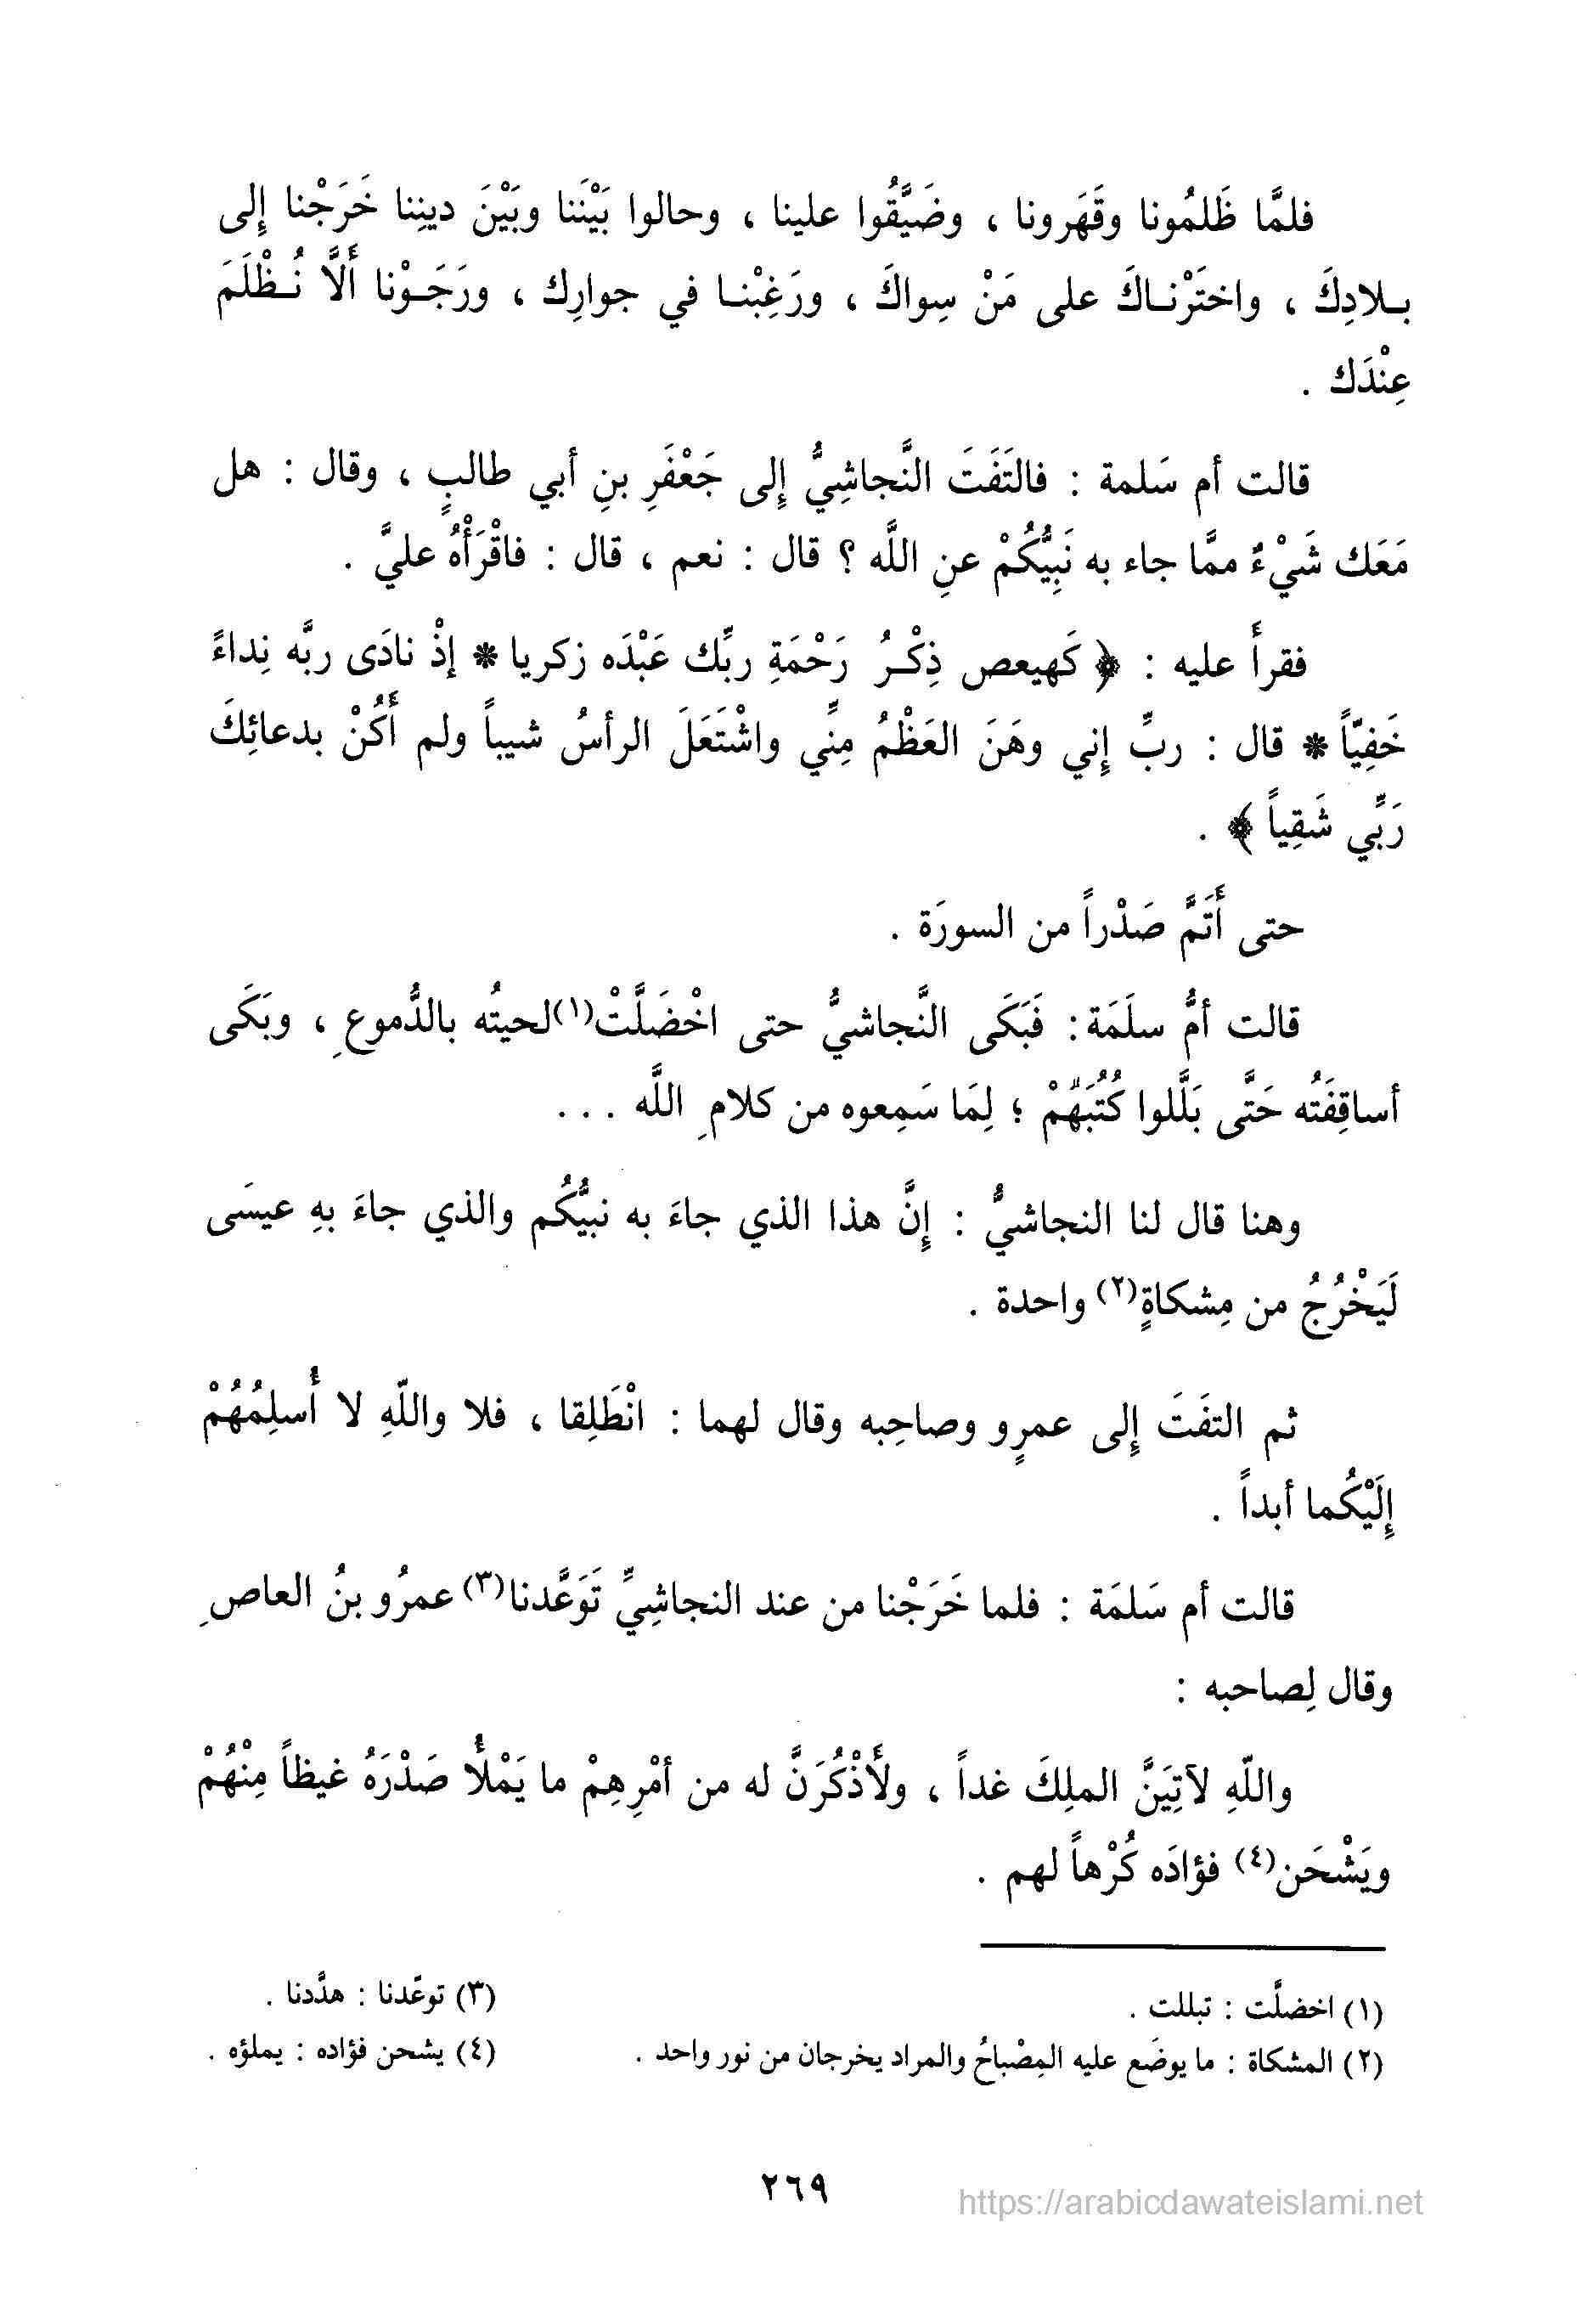 فلمَّا ظَلمُونا وقَهَرونا ، وضَيَّقُوا علينا ، وحالوا بَيْنَنا وبَيْنَ دينِنا خَرَجْنا إِلى
بـلادِكَ ، واختَرْنـاكَ على مَنْ سِواكَ ، ورَغِبْنـا في جوارِك ، ورَجَـوْنا أَلاَّ نُـظْلَمَ
عِنْدَك .
قالت أم سَلمة : فالتَفَتَ النَّجاشِيُّ إِلى جَعْفَرِ بنِ أبي طالبٍ ، وقال : هل
مَعَك شَيْءٌ ممَّا جاء به نَبِيُّكُمْ عنِ اللَّه ؟ قال : نعم ، قال : فاقْرَأْهُ عليَّ .
فقرأَ عليه : ﴿ كَهيعص ذِكْـرُ رَحْمَةِ ربِّك عَبْدَه زكريا * إذْ نادَى ربَّه نِداءً
خَفِيّاً * قال : ربِّ إِني وهَنَ العَظْمُ مِنِّي واشْتَعَلَ الرأسُ شيباً ولم أَكُنْ بدعائِكَ
رَبِّي شَقِياً ﴾ .
حتى أَتَمَّ صَدْراً من السورَة .
قالت أمُّ سلَمَة : فَبَكَى النَّجاشيُّ حتى اخْضَلَّتْ(١) لحيتُه بالدُّموعِ ، وبَكَى
أساقِفَتُه حَتَّى بَلَّلوا كُتُبَهُمْ ؛ لِمَا سَمِعوه من كلامِ اللَّه . . .
وهنا قال لنا النجاشيُّ : إِنَّ هذا الذي جاءَ به نبيُّكُم والذي جاءَ بهِ عيسَى
لَيَخْرُجُ من مِشكاةٍ(٢) واحدة .
ثم التفَتَ إِلى عمرٍو وصاحِبه وقال لهما : انْطَلِقا ، فلا واللّهِ لا أُسلِمُهُمْ
إِلَيْكُما أبداً .
قالت أم سَلمَة : فلما خَرَجْنا من عند النجاشِيِّ تَوَعَّدنا(٣) عمرُو بنُ العاصِ
وقال لِصاحبه :
واللّهِ لآتِيَنَّ الملِكَ غداً ، ولأَذْكُرَنَّ له من أمْرِهِمْ ما يَمْلأُ صَدْرَهُ غيظاً مِنْهُمْ
ويَشْحَن(٤) فؤادَه كُرْهاً لهم .
(١) اخضلَّت : تبللت .
(٢) المشكاة : ما يوضَع عليه المِصْباحُ والمراد يخرجان من نور واحد .
(٣) توعّدنا : هدَّدنا .
(٤) يشحن فؤاده : يملؤه .
٢٦٩
https://arabicdawateislami.net